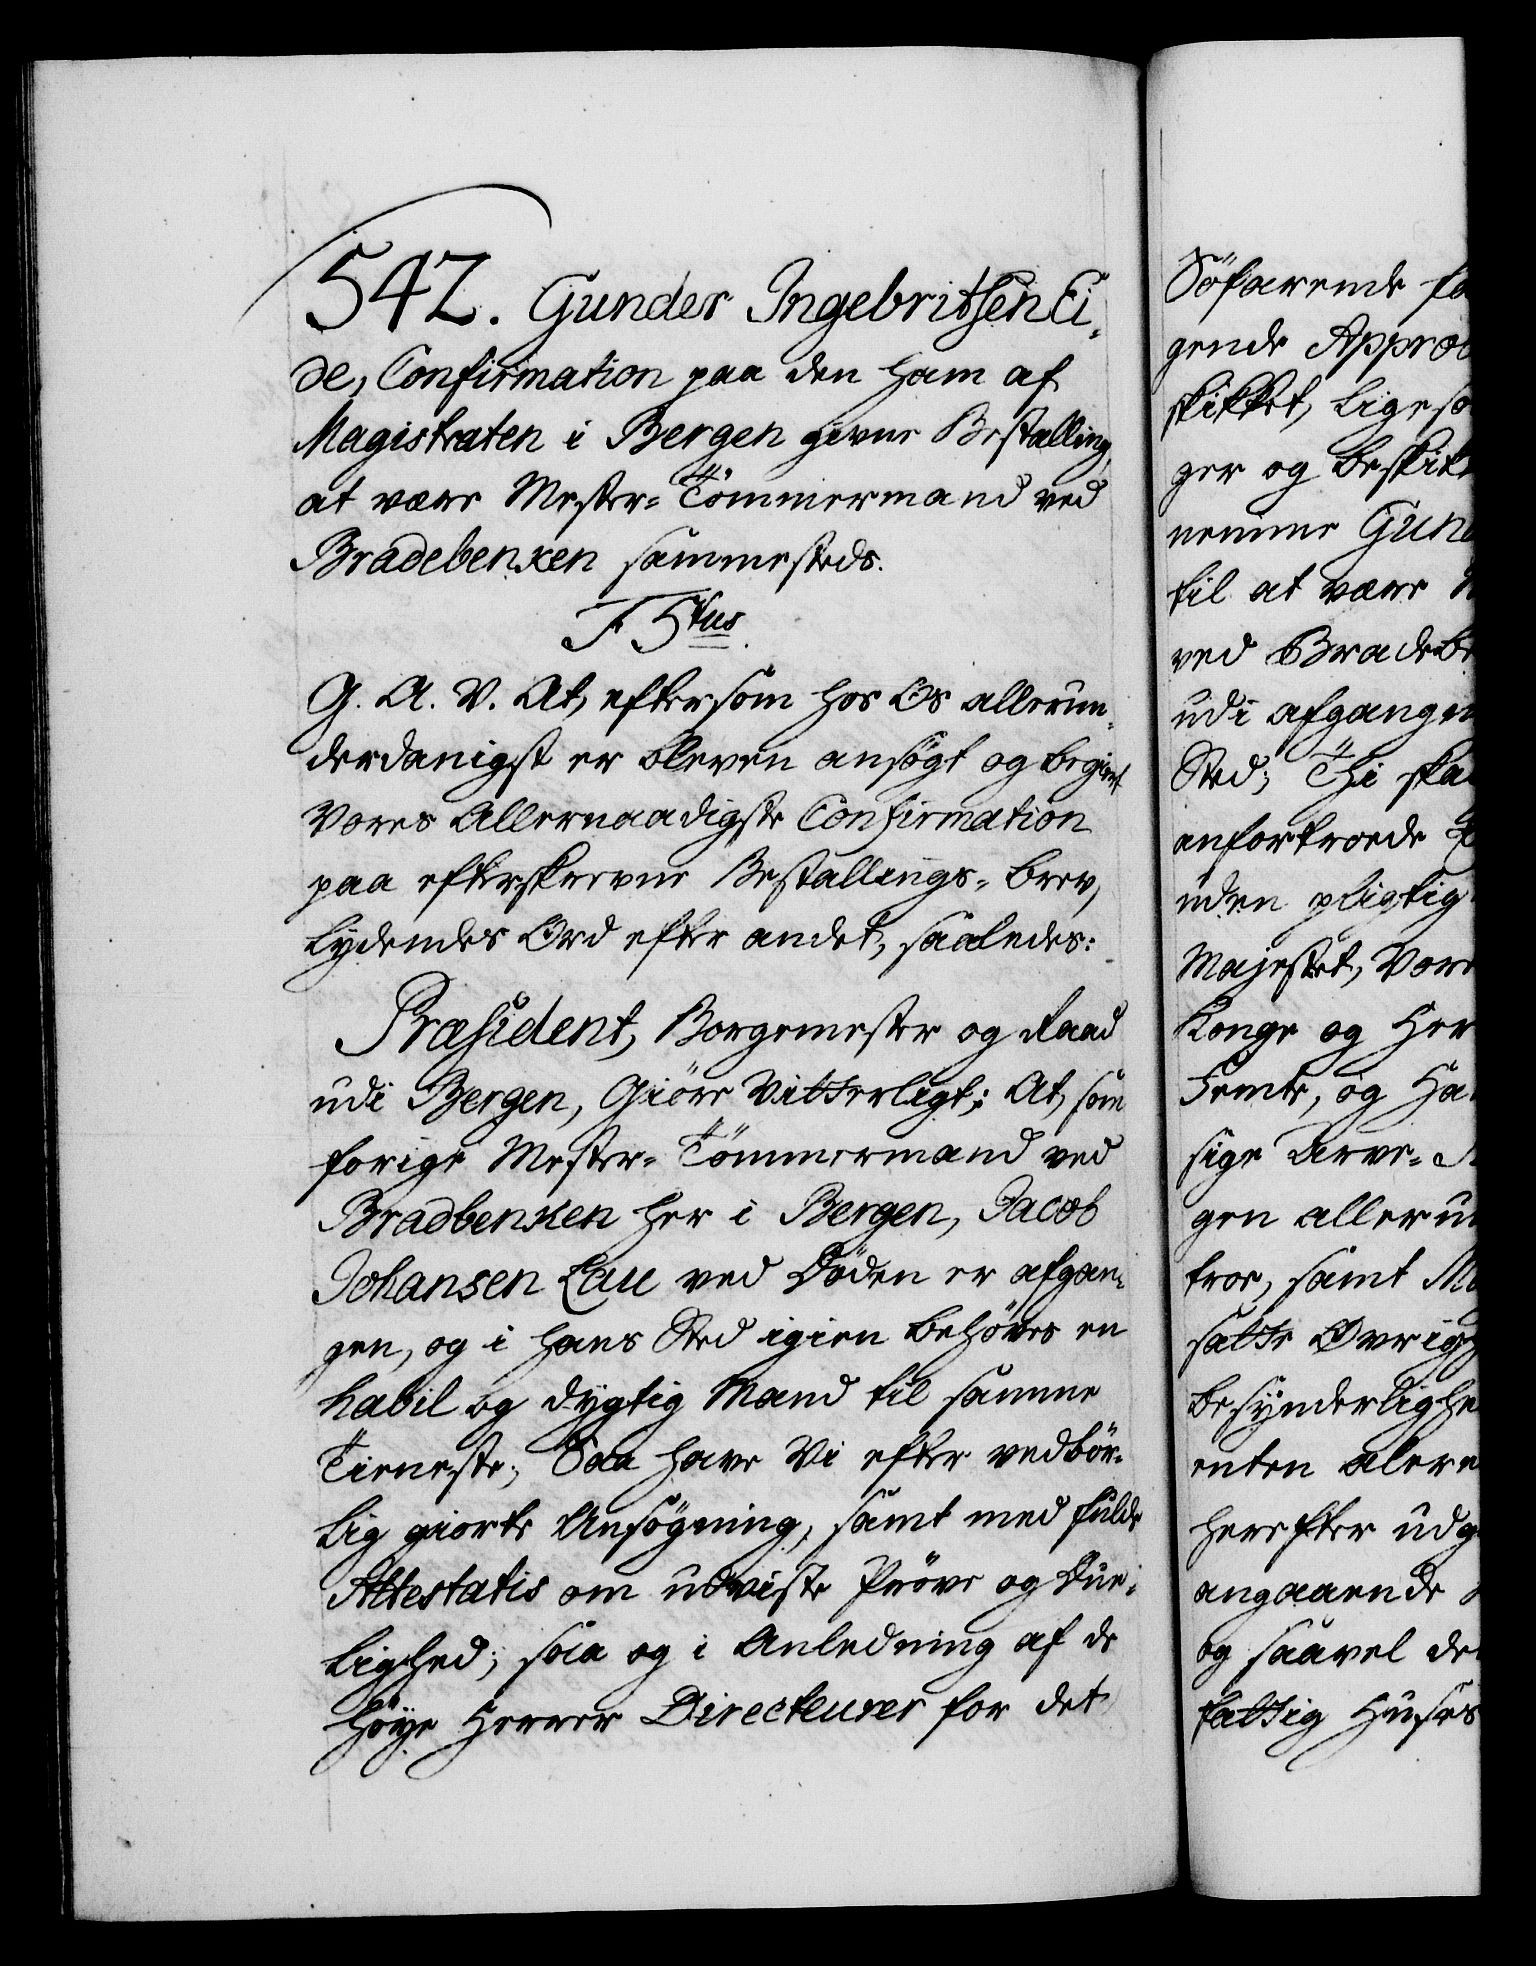 542. Gunder Ingebritsen Ei-
de, Confirmation paa den ham af
Magistraten i Bergen givne Bestalling,
at være Mester-Tömmermand ved
Bradebenken sammesteds.
F 5tus
G. A. V. At, eftersom hos Os allerun-
derdanigst er bleven ansögt og begiert
Vores Allernaadigste Confirmation
paa efterskrevne Bestallings-Brev,
lydendes Ord efter andet, saaledes:
Præsident, Borgemester og Raad
udi Bergen, Giöre Vitterligt; At, som
forige Mester-Tömmermand ved
Bradbenken her i Bergen, Jacob
Johansen Lau ved Döden er afgan-
gen, og i hans Sted igien behöves en
habil og dygtig Mand til samme
Tieneste; Saa have Vi efter vedbör-
lig giorte Ansögning, samt med fulde
Attestatis om udviste Pröve og Due-
lighed; saa og i Anledning af de
höye Herrer Directeurer for det
Söfarende fa
gende Approb
skikket, ligeso
ger og beskikk
nemme Gun
til at være M
ved Bradebe
udi afgangen
Sted; Thi ska
anfortroede
uden pligtig
Majestet, Vore
Konge og Her
Femte, og Ha
sige Arve-
gen alleru
troe, samt Ma
satte Øvrigh
besynderlighe
enten alere
herefter udg
angaaende
og saavel de
fattig Huses